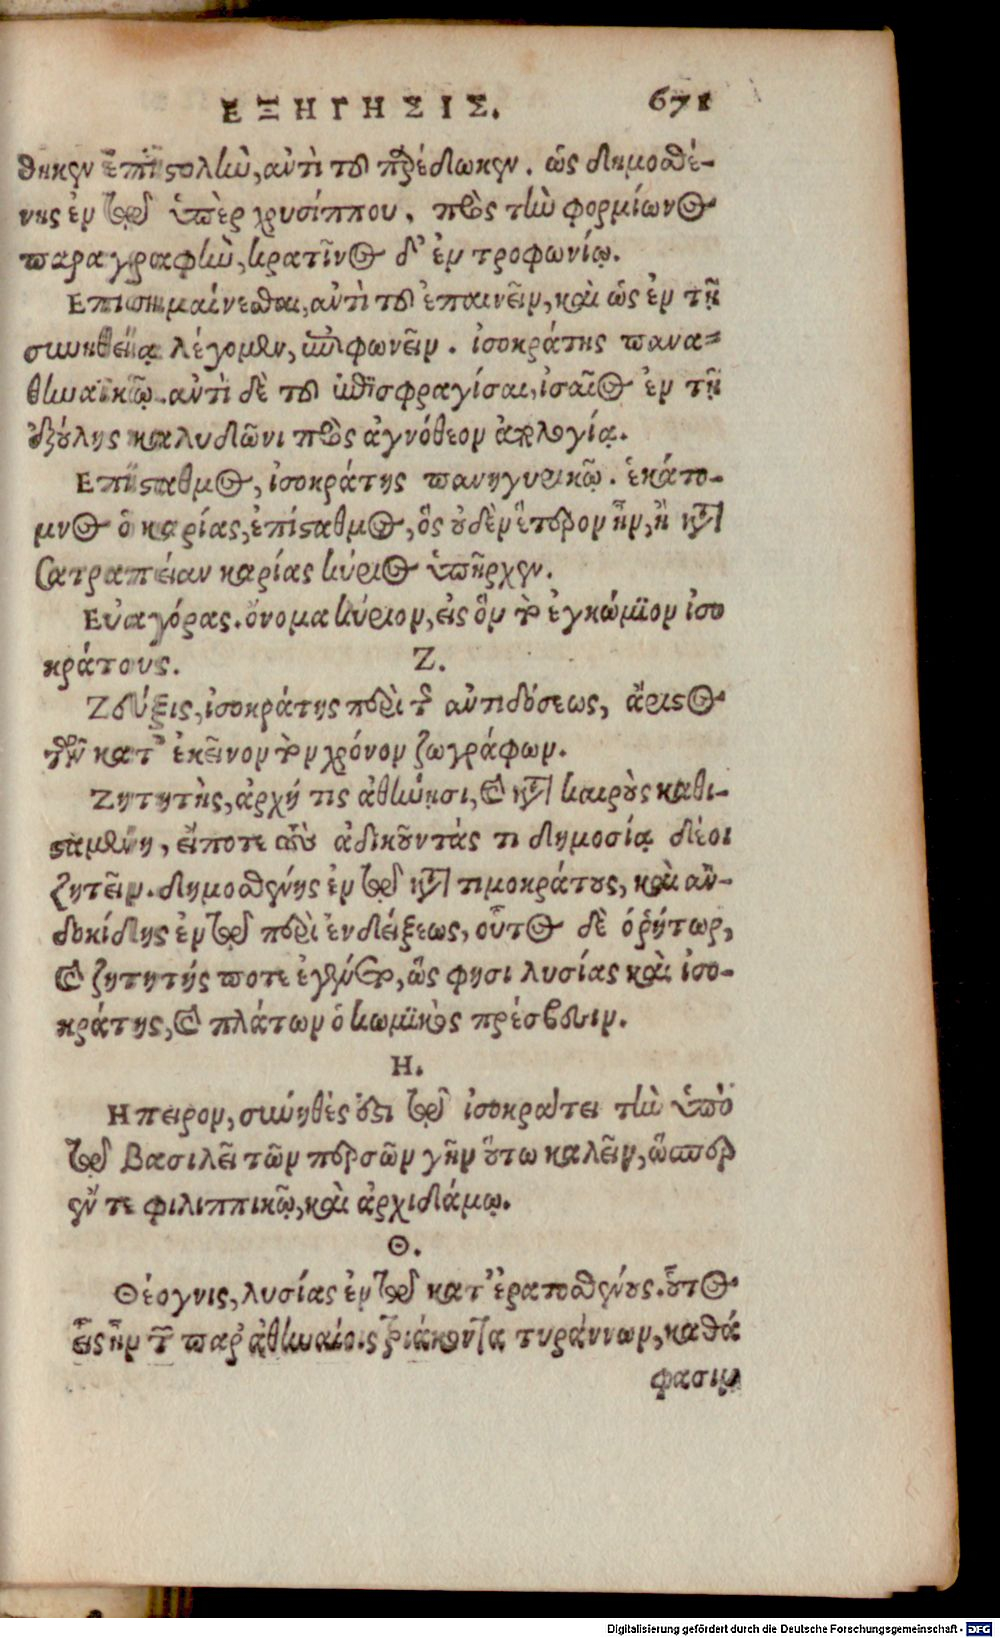 ΕΞΗΓΗΣΙΣ. 671
θηκεν ἐπιστολὴν, ἀντὶ τοῦ παρέδωκεν. ὡς δημοσθέ-
νης ἐν τῷ ὑπὲρ χρυσίππου, πρὸς τὴν φορμίωνος
παραγραφὴν, κρατῖνος δ' ἐν τροφωνίῳ.
Επισημαίνεσθαι, ἀντὶ τοῦ ἐπαινεῖν, καὶ ὡς ἐν τῇ
συνηθείᾳ λέγομεν, ἐπιφωνεῖν. ἰσοκράτης πανα-
θηναϊκῷ. ἀντὶ δὲ τοῦ ἐπισφραγίσαι, ἰσαῖος ἐν τῇ
ἐξούλης καλυδῶνι πρὸς ἁγνόθεον ἀπολογίᾳ.
Επίσταθμος, ἰσοκράτης πανηγυρικῷ. ἑκάτο-
μνος ὁ καρίας, ἐπίσταθμος, ὃς οὐδὲν ἕτερον ἦν, ἢ κατὰ
σατραπείαν καρίας κύριος ὑπῆρχεν.
Εὐαγόρας. ὄνομα κύριον, εἰς ὃν τὸ ἐγκώμϊον ἰσο
κράτους. Ζ.
Ζεύξις, ἰσοκράτης περὶ τῆς ἀντιδόσεως, ἄριστος
τῶν κατ' ἐκεῖνον τὸν χρόνον ζωγράφων.
Ζητητὴς, ἀρχή τις ἀθήνησι, καὶ κατὰ καιροὺς καθι-
σταμένη, εἴποτε τοὺς ἀδικοῦντάς τι δημοσίᾳ δέοι
ζητεῖν. δημοσθένης ἐν τῷ κατὰ τιμοκράτους, καὶ ἀν-
δοκίδης ἐν τῷ περὶ ἐνδείξεως, οὗτος δὲ ὁ ῥήτωρ,
καὶ ζητητής ποτε ἐγένετο, ὥς φησι λυσίας καὶ ἰσο-
κράτης, καὶ πλάτων ὁ κωμϊκὸς πρέσβεσιν.
Η.
Ηπειρον, σύνηθές ἐστι τῷ ἰσοκράτει τὴν ὑπὸ
τῷ βασιλεῖ τῶν περσῶν γῆν οὕτω καλεῖν, ὥσπερ
ἔν τε φιλιππικῷ, καὶ ἀρχιδάμῳ.
Θ.
Θέογνις, λυσίας ἐν τῷ κατ' ἐρατοσθένους. οὗτος
εἷς ἦν τῶν παρ' ἀθηναίοις τριάκοντα τυράννων, καθά
φασιν
Digitalisierung gefördert durch die Deutsche Forschungsgemeinschaft - DFG